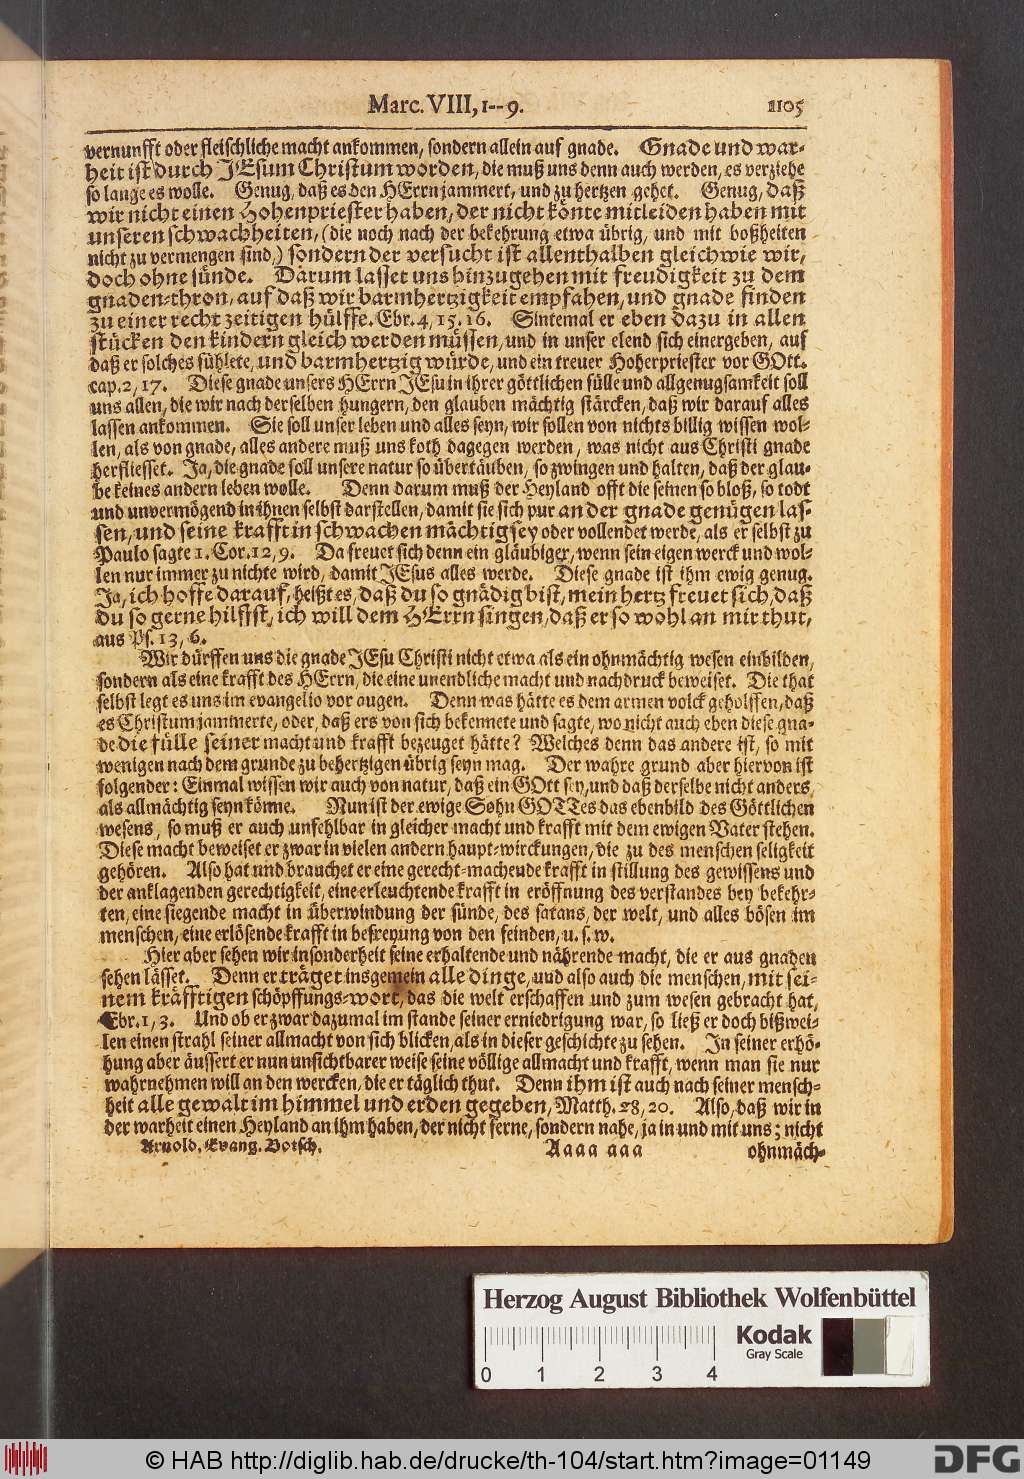 Marc. VIII, 1--9. 1105
vernunfft oder fleischliche macht ankommen, sondern allein auf gnade. Gnade und war-
heit ist durch JEsum Christum worden, die muß uns denn auch werden, es verziehe
so lange es wolle. Genug, daß es den HErrn jammert, und zu hertzen gehet. Genug, daß
wir nicht einen Hohenpriester haben, der nicht könte mitleiden haben mit
unseren schwachheiten, (die noch nach der bekehrung etwa übrig, und mit boßheiten
nicht zu vermengen sind,) sondern der versucht ist allenthalben gleich wie wir,
doch ohne sünde. Darum lasset uns hinzugehen mit freudigkeit zu dem
gnaden-thron, auf daß wir barmhertzigkeit empfahen, und gnade finden
zu einer recht zeitigen hülffe. Ebr. 4, 15. 16. Sintemal er eben dazu in allen
stücken den kindern gleich werden müssen, und in unser elend sich einergeben, auf
daß er solches fühlete, und barmhertzig würde, und ein treuer Hoherpriester vor GOtt.
cap. 2, 17. Diese gnade unsers HErrn JEsu in ihrer göttlichen fülle und allgenugsamkeit soll
uns allen, die wir nach derselben hungern, den glauben mächtig stärcken, daß wir darauf alles
lassen ankommen. Sie soll unser leben und alles seyn, wir sollen von nichts billig wissen wol-
len, als von gnade, alles andere muß uns koth dagegen werden, was nicht aus Christi gnade
herfliesset. Ja, die gnade soll unsere natur so übertäuben, so zwingen und halten, daß der glau-
be keines andern leben wolle. Denn darum muß der Heyland offt die seinen so bloß, so todt
und unvermögend in ihnen selbst darstellen, damit sie sich pur an der gnade genügen las-
sen, und seine krafft in schwachen mächtig sey oder vollendet werde, als er selbst zu
Paulo sagte 1. Cor. 12, 9. Da freuet sich denn ein gläubiger, wenn sein eigen werck und wol-
len nur immer zu nichte wird, damit JEsus alles werde. Diese gnade ist ihm ewig genug.
Ja, ich hoffe darauf, heißt es, daß du so gnädig bist, mein hertz freuet sich, daß
du so gerne hilffst, ich will dem HErrn singen, daß er so wohl an mir thut,
aus Ps. 13, 6.
Wir dürffen uns die gnade JEsu Christi nicht etwa als ein ohnmächtig wesen einbilden,
sondern als eine krafft des HErrn, die eine unendliche macht und nachdruck beweiset. Die that
selbst legt es uns im evangelio vor augen. Denn was hätte es dem armen volck geholffen, daß
es Christum jammerte, oder, daß ers von sich bekennete und sagte, wo nicht auch eben diese gna-
de die fülle seiner macht und krafft bezeuget hätte? Welches denn das andere ist, so mit
wenigen nach dem grunde zu behertzigen übrig seyn mag. Der wahre grund aber hiervon ist
folgender: Einmal wissen wir auch von natur, daß ein GOtt sey, und daß derselbe nicht anders,
als allmächtig seyn könne. Nun ist der ewige Sohn GOTTes das ebenbild des Göttlichen
wesens, so muß er auch unfehlbar in gleicher macht und krafft mit dem ewigen Vater stehen.
Diese macht beweiset er zwar in vielen andern haupt-wirckungen, die zu des menschen seligkeit
gehören. Also hat und brauchet er eine gerecht-machende krafft in stillung des gewissens und
der anklagenden gerechtigkeit, eine erleuchtende krafft in eröffnung des verstandes bey bekehr-
ten, eine siegende macht in überwindung der sünde, des satans, der welt, und alles bösen im
menschen, eine erlösende krafft in befreyung von den feinden, u. s. w.
Hier aber sehen wir insonderheit seine erhaltende und nährende macht, die er aus gnaden
sehen lässet. Denn er träget insgemein alle dinge, und also auch die menschen, mit sei-
nem kräfftigen schöpffungs-wort, das die welt erschaffen und zum wesen gebracht hat,
Ebr. 1, 3. Und ob er zwar dazumal im stande seiner erniedrigung war, so ließ er doch bißwei-
len einen strahl seiner allmacht von sich blicken, als in dieser geschichte zu sehen. In seiner erhö-
hung aber äussert er nun unsichtbarer weise seine völlige allmacht und krafft, wenn man sie nur
wahrnehmen will an den wercken, die er täglich thut. Denn ihm ist auch nach seiner mensch-
heit alle gewalt im himmel und erden gegeben, Matth. 28, 20. Also, daß wir in
der warheit einen Heyland an ihm haben, der nicht ferne, sondern nahe, ja in und mit uns; nicht
Arnold. Evang. Botsch. Aaaa aaa ohnmäch-
Herzog August Bibliothek Wolfenbüttel
Kodak
Gray Scale
0 1 2 3 4
© HAB http://diglib.hab.de/drucke/th-104/start.htm?image=01149
DFG